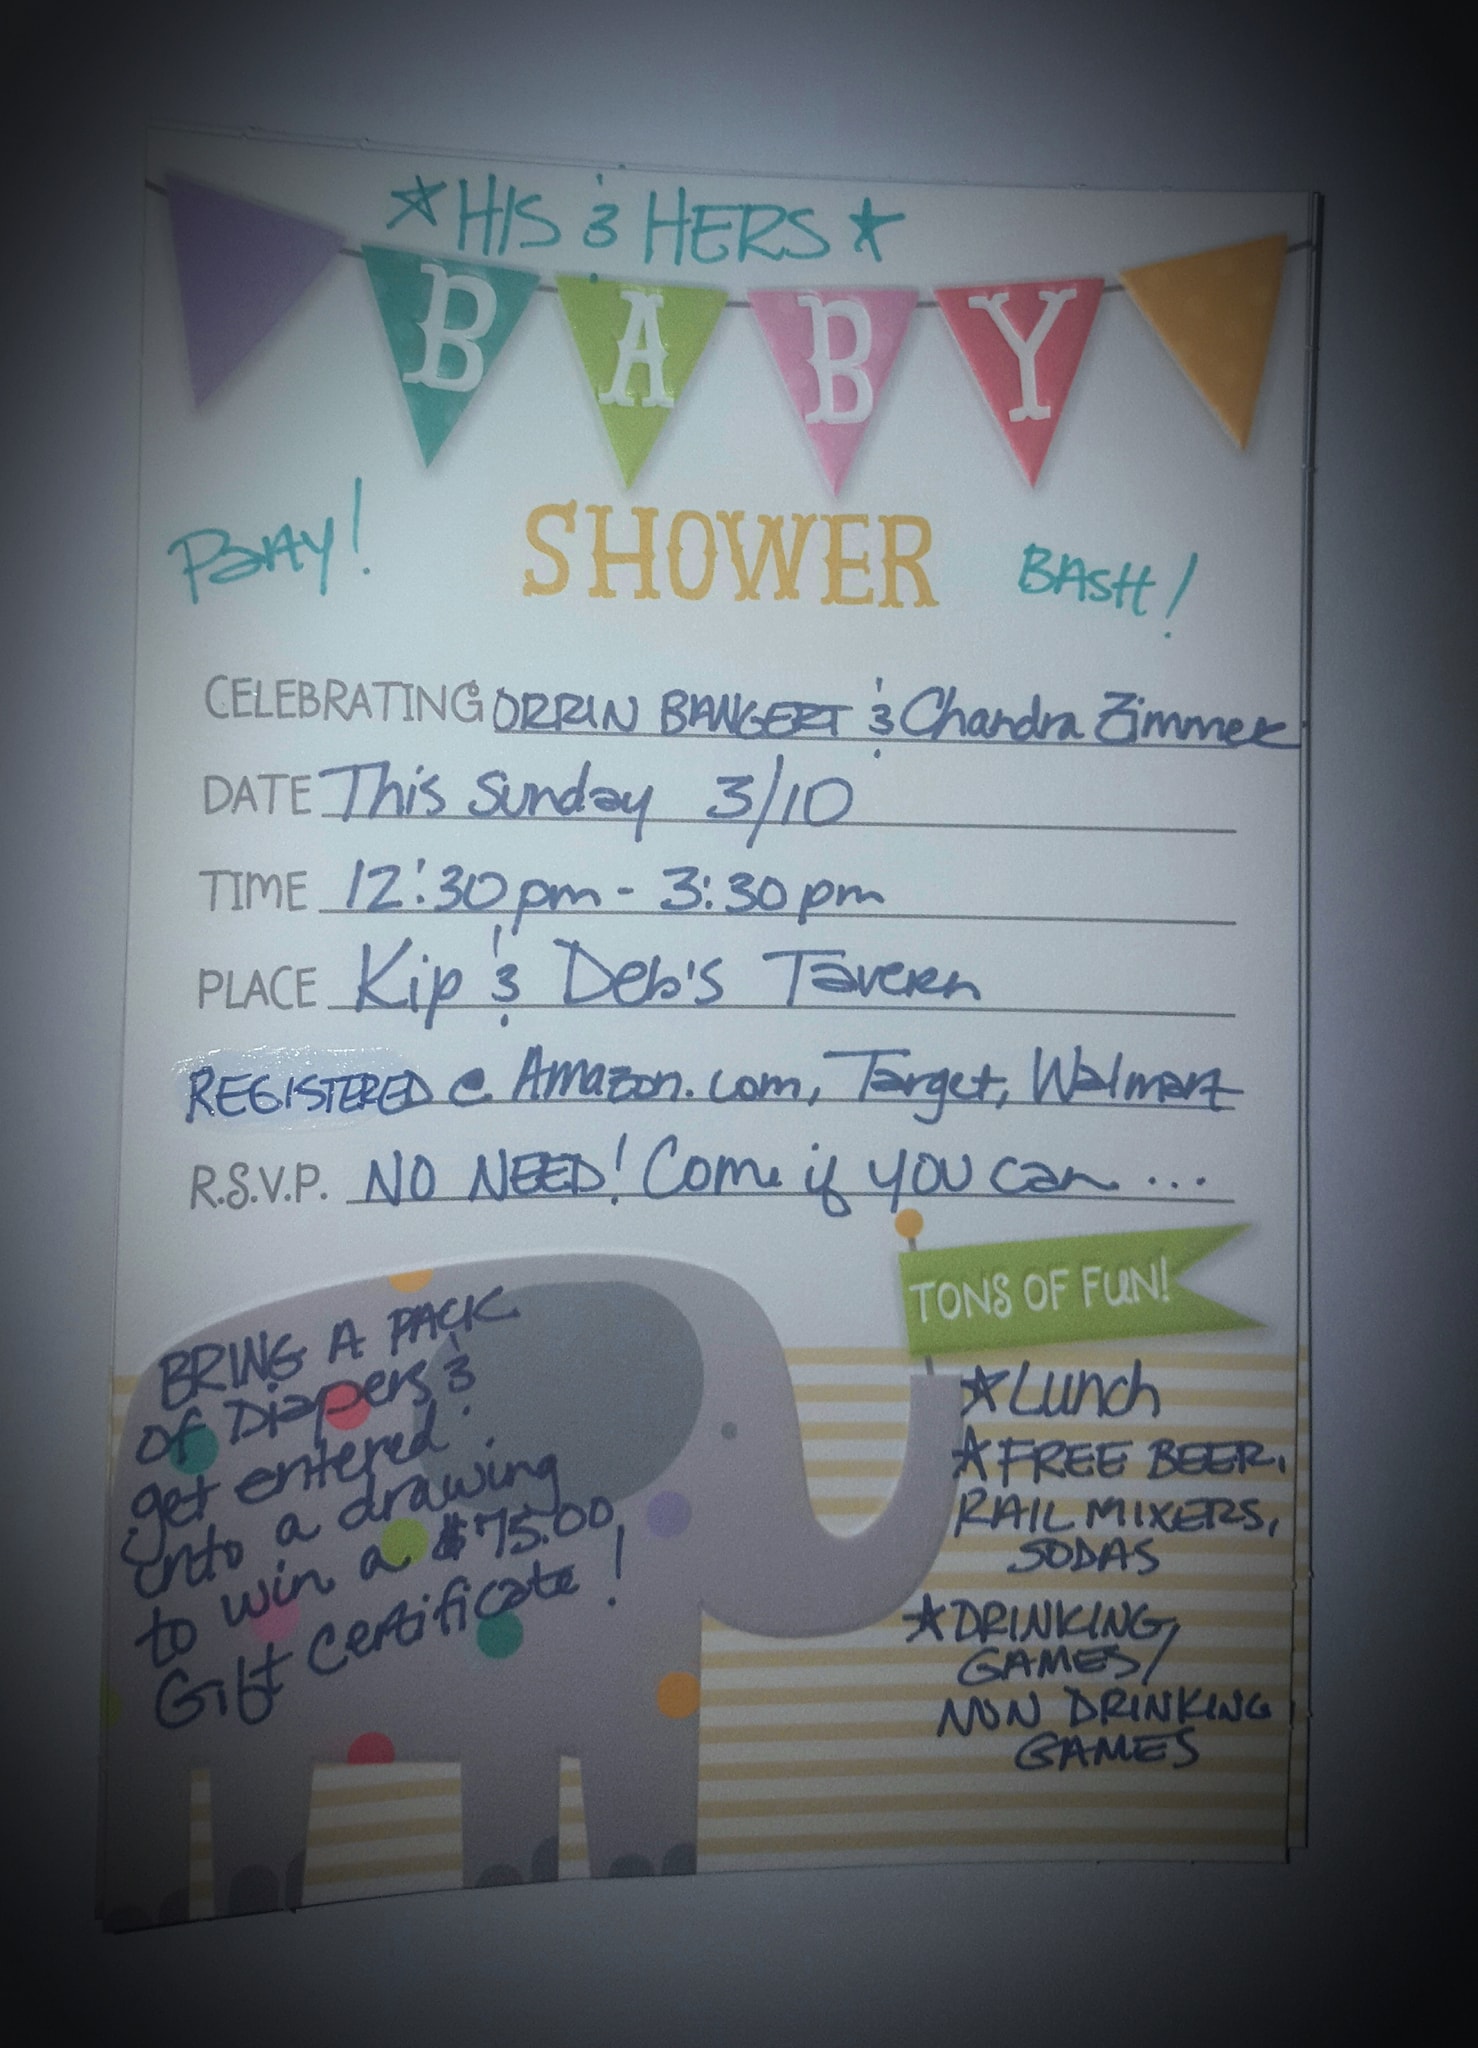 ☆ HIS & HERS ☆
BABY
Party! SHOWER BASH!
CELEBRATING ORRIN BANGERT & Chandra Zimmer
DATE This Sunday 3/10
TIME 12:30pm - 3:30pm
PLACE Kip & Deb's Tavern
REGISTERED @ Amazon.com, Target, Walmart
R.S.V.P. NO NEED! Come if you can ...
TONS OF FUN!
BRING A PACK
of Diapers &
get entered
into a drawing
to win a $75.00
Gift Certificate!
☆ Lunch
☆ FREE BEER,
RAIL MIXERS,
SODAS
☆ DRINKING
GAMES/
NON DRINKING
GAMES